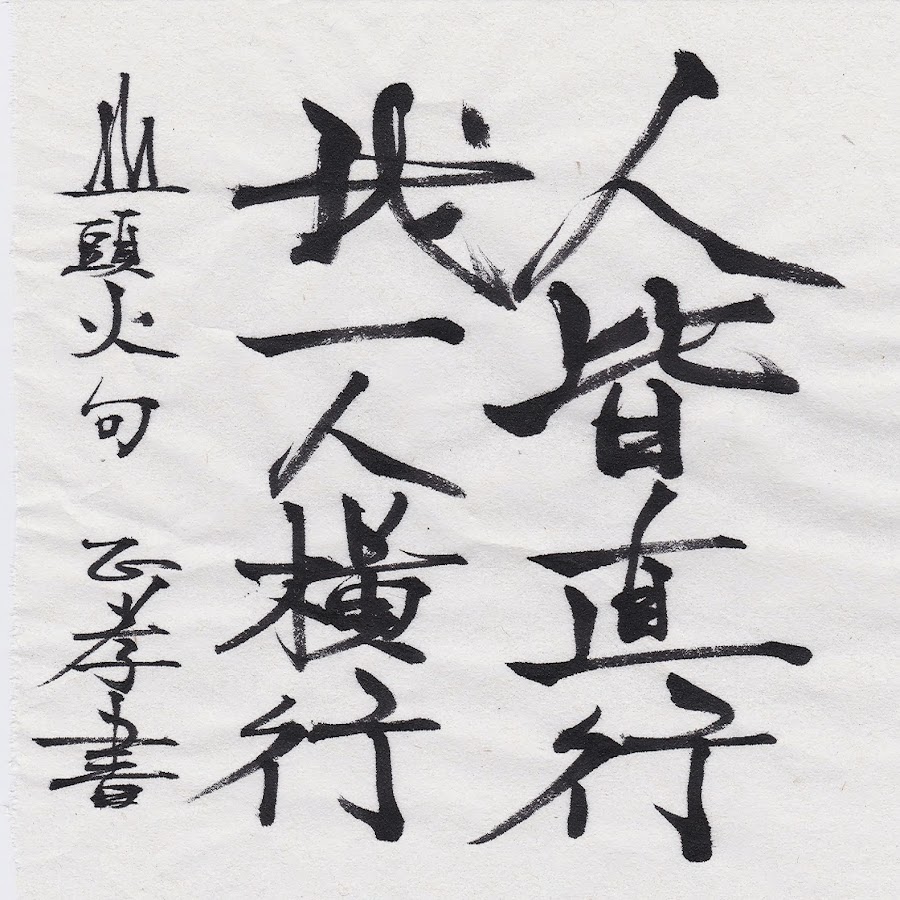 人皆直行
我一人橫行
山頭火句 正孝書